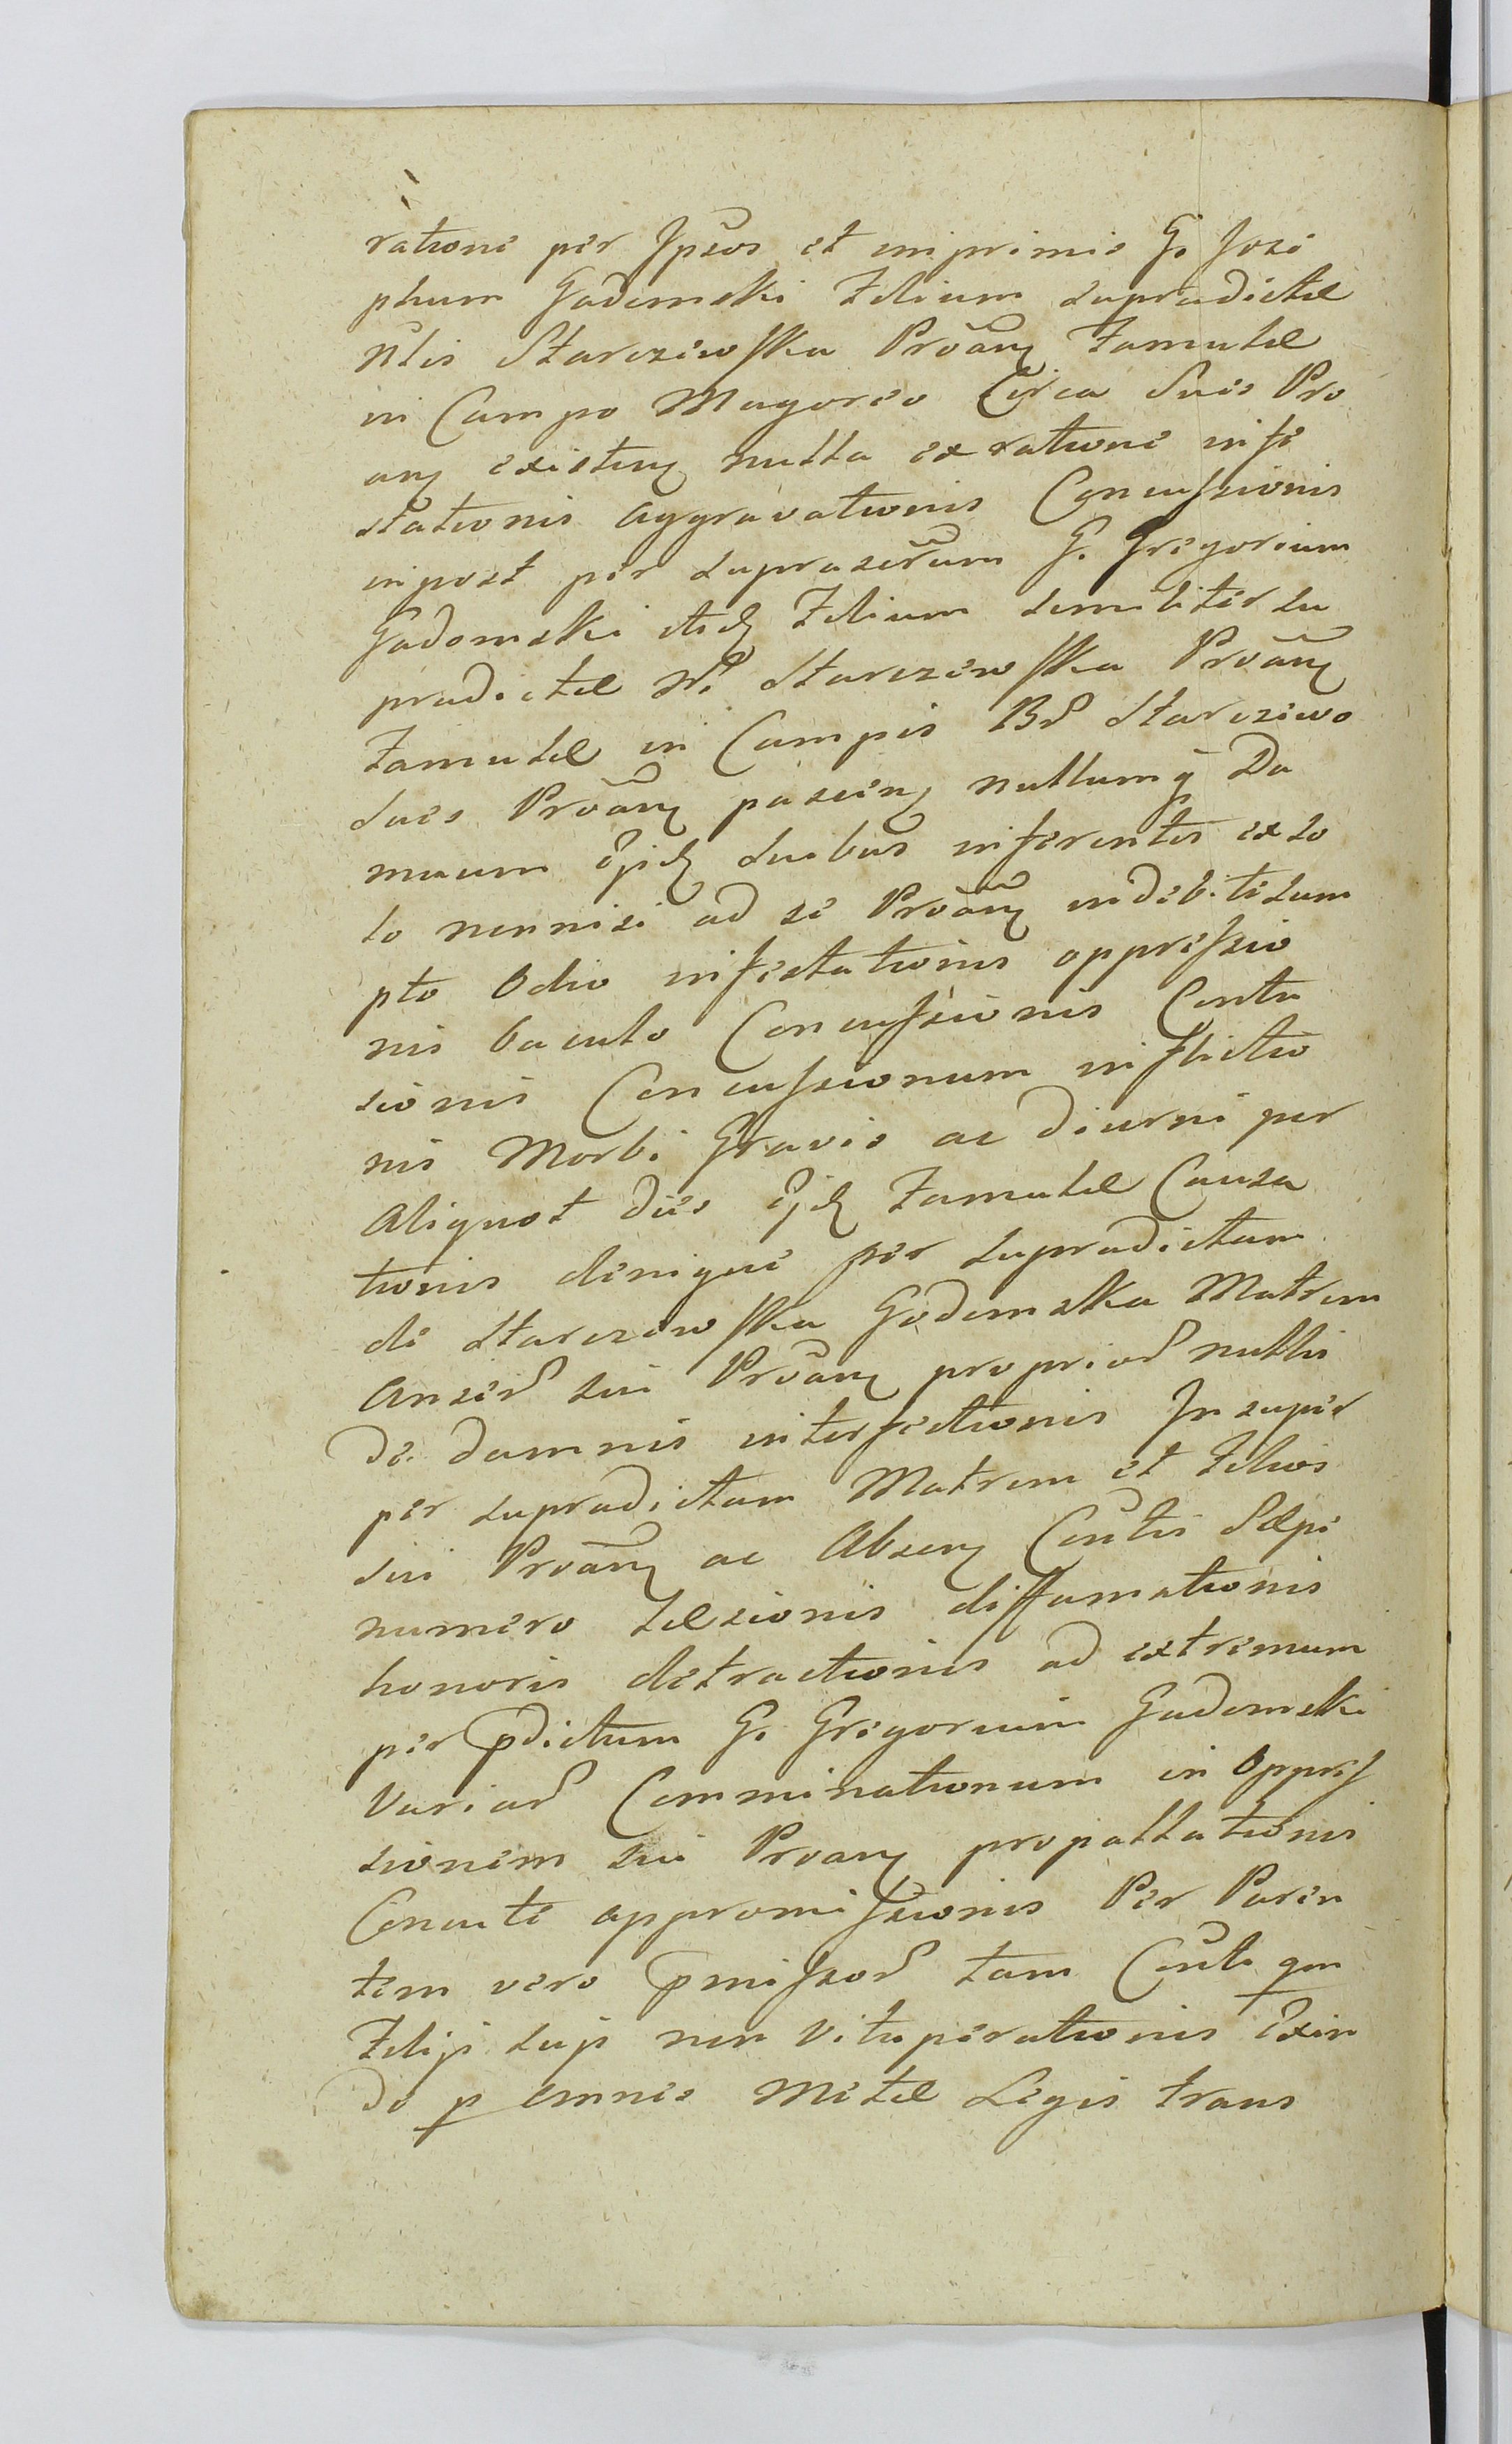 ratione per Ipsos et inprimis G. Jose
phum Gadomski Filium supradictæ
Nlis Starczewska Proãnt Famulæ
in Campo Magoreo Circa Sues Pro
ant existent nulla ex ratione infe
stationis aggravationis Concussionis
inpost per suprascr̃um G. Gregorium
Gadomski itid Filium similiter su
pradictæ N. Starczewska Proãnt
Famulæ in Campis Br Starczewo
sues Proãnt pascent nullumq̃ Da
mnum ejsd suibus inferentis ex so
lo nonnisi ad se Proãnt indebite sum
pto Odio infestationis oppressio
nis baculo Concussionis Contu
sionis Concussionum inflictio
nis Morbi Gravis ac diurni per
Aliquot dies ejsd Famulæ Causa
tionis denique per supradictam
de Starczewska Godomska Matrem
Anser sui Proãnt proprior nullis
de damnis interfectionis Insuper
per supradictam Matrem et Filios
sui Proãnt ac Absent Cõntis Sæpe
numero læsionis diffamationis
honoris detractionis ad extremum
per pdictum G. Gregorium Gadomski
Variar Comminationum in Oppres
sionem sui Proant propallationis
Conanti appromissionis Per Paren
tem vero pmissor tam Cõnti qm
Filijs suis non Vituperationis Exin
de p omnes Metæ Legis trans